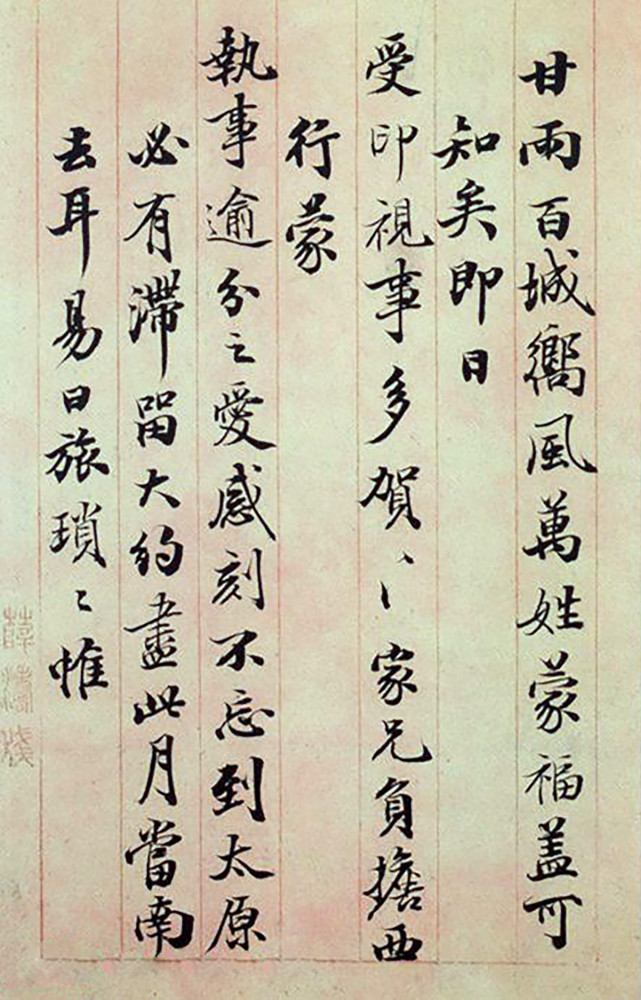 甘雨百城嚮風萬姓蒙福盖可
知矣即日
受印視事多賀〻家兄負擔西
行蒙
執事逾分之愛感刻不忘到太原
必有滯留大約盡此月當南
去耳易日旅瑣〻惟